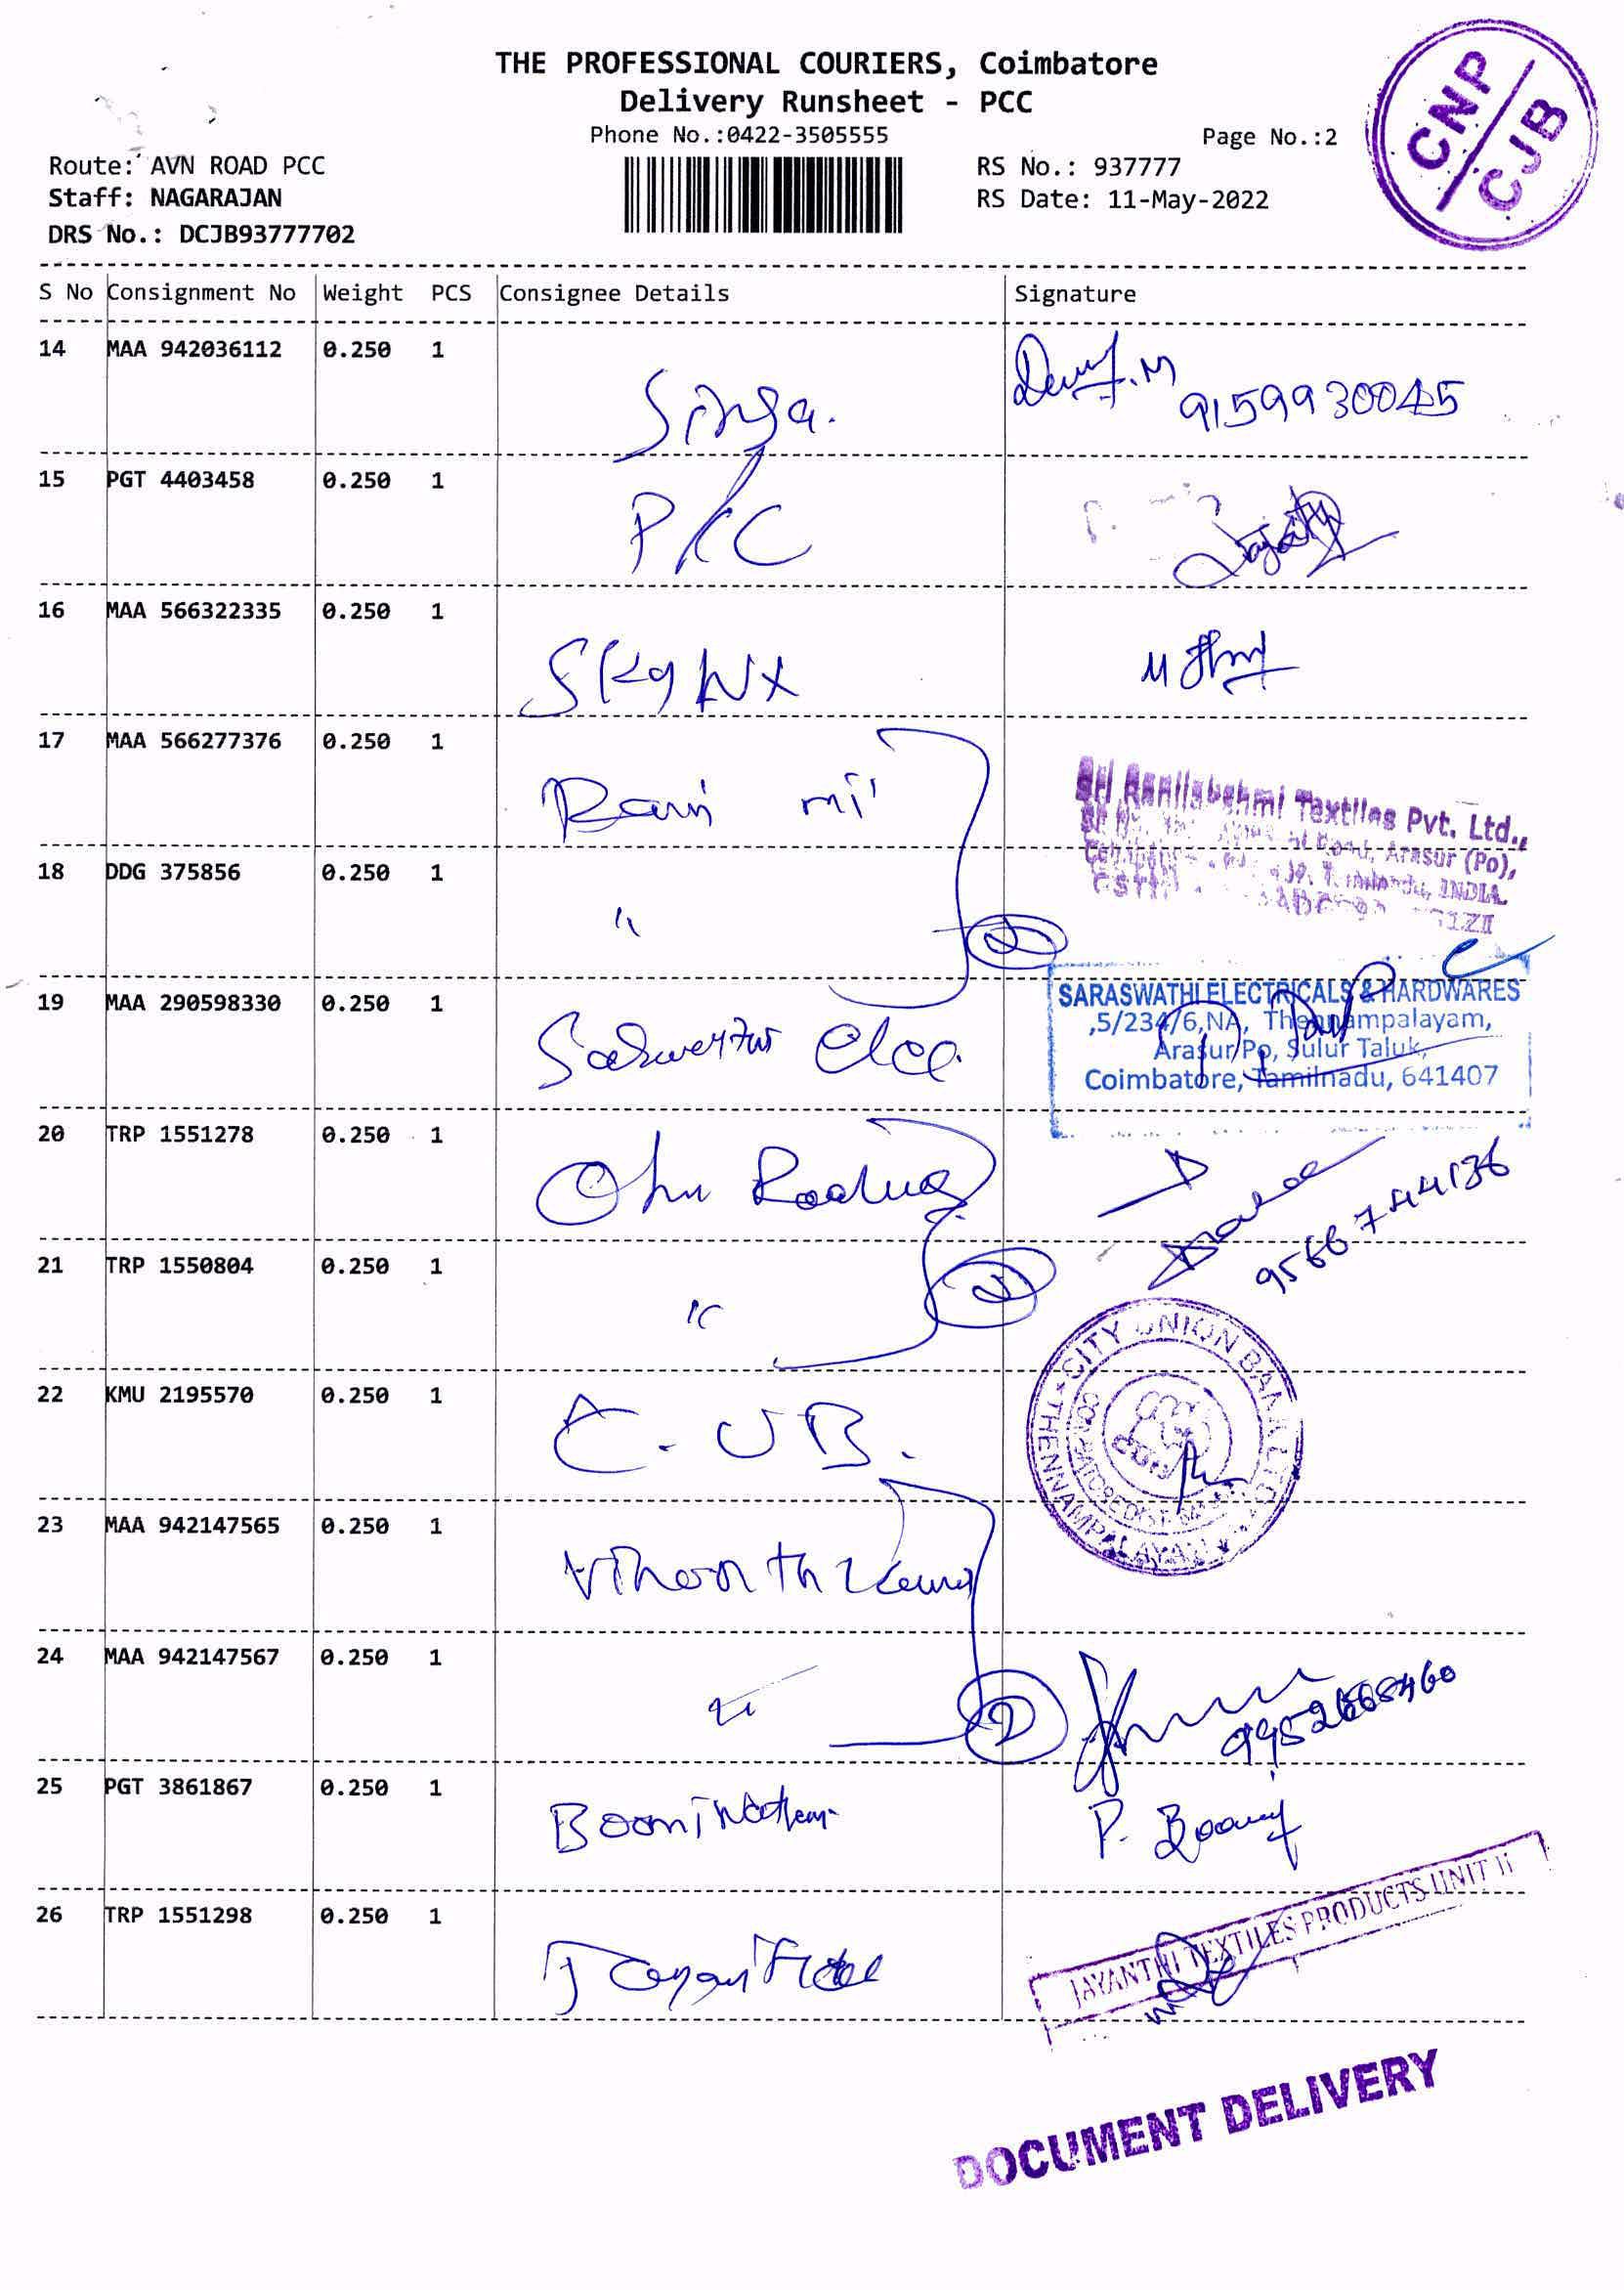 THE PROFESSIONAL COURIERS, Coimbatore
Delivery Runsheet - PCC
Phone No.:0422-3505555
Page No.:2
CNP
CJB
Route: AVN ROAD PCC
RS No.: 937777
Staff: NAGARAJAN
RS Date: 11-May-2022
DRS No.: DCJB93777702
S No Consignment No Weight PCS Consignee Details Signature
14 MAA 942036112 0.250 1
Singa.
9159930045
15 PGT 4403458 0.250 1
16 MAA 566322335 0.250 1
17 MAA 566277376 0.250 1
Textiles Pvt. Ltd.,
Arasur (Po),
INDIA.
18 DDG 375856 0.250 1
"
19 MAA 290598330 0.250 1
SARASWATHI ELECTRICALS & HARDWARES
,5/234/6,NA, Thennampalayam,
Arasur Po, Sulur Taluk,
Coimbatore, Tamilnadu, 641407
20 TRP 1551278 0.250 1
9566744136
21 TRP 1550804 0.250 1
"
22 KMU 2195570 0.250 1
C. U B.
CITY UNION BANK LTD
THENNAMPALAYAM
23 MAA 942147565 0.250 1
24 MAA 942147567 0.250 1
"
2
25 PGT 3861867 0.250 1
Boominathan
P. Boomi
26 TRP 1551298 0.250 1
JAYANTHI TEXTILES PRODUCTS UNIT II
DOCUMENT DELIVERY